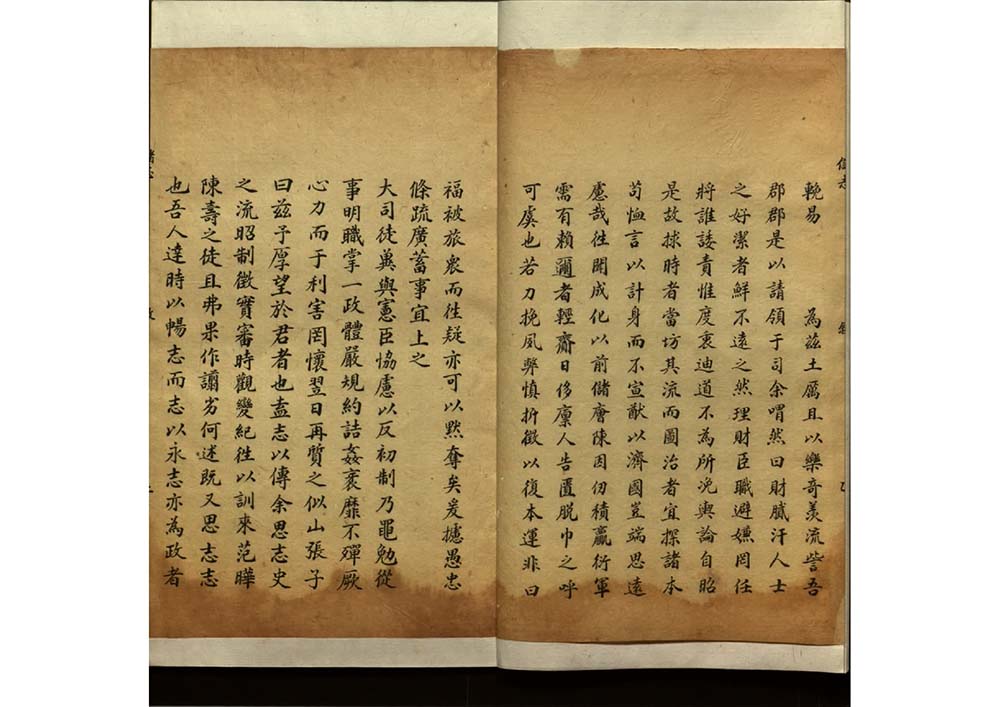 輓易　　為茲土厲且以樂奇羨流訾吾
郡郡是以請領于司余喟然曰財膩汙人士
之好潔者鮮不遠之然理財臣職避嫌罔任
將誰諉責惟度衷迪道不為所浼輿論自昭
是故捄時者當坊其流而圖治者宜探諸本
苟恤言以計身而不宣猷以濟國豈端思遠
慮哉徃聞成化以前儲廥陳因仞積贏衍軍
需有賴邇者輕齎日侈廩人告匱脫巾之呼
可虞也若刀挽夙弊慎折徵以復本運非曰
福被旅衆而徃疑亦可以黙奪矣爰攄愚忠
條疏廣蓄事宜上之
大司徒兾與憲臣恊慮以反初制乃黽勉從
事明職掌一政體嚴規約詰姦褱靡不殫厥
心力而于利害罔懷翌日再質之似山張子
曰茲予厚望於君者也盍志以傳余思志史
之流昭制徵實審時觀變紀徃以訓來范曄
陳壽之徒且弗果作謭劣何述既又思志志
也吾人達時以暢志而志以永志亦為政者